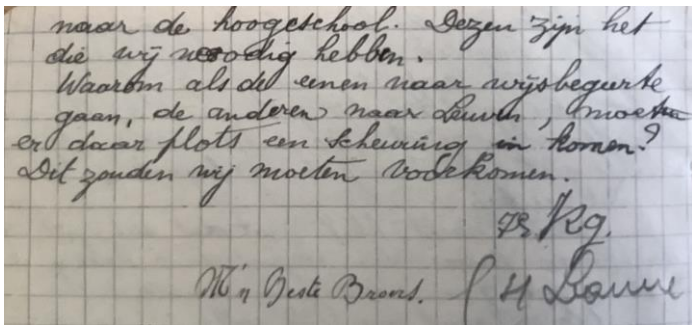 naar de hoogeschool. Dezen zijn het
die wij noodig hebben.
Waarom als de eenen naar wijsbegeerte
gaan, de anderen naar Leuven, moet
er daar plots een scheuring in komen?
Dit zouden wij moeten voorkomen.
Kg.
M'n Beste Broers.